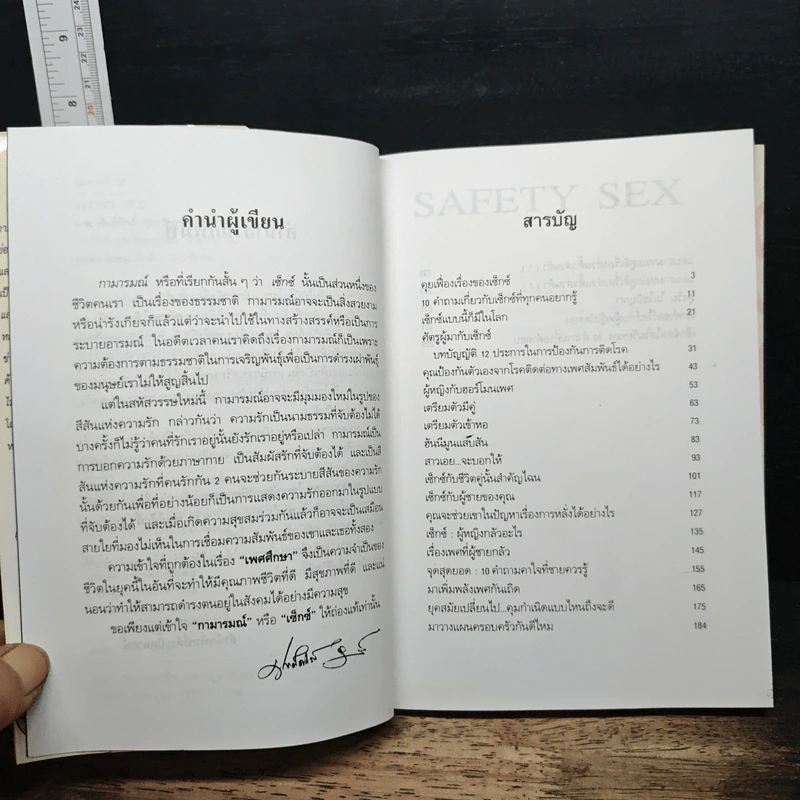 9
8
คำนำผู้เขียน
กามารมณ์ หรือที่เรียกกันสั้น ๆ ว่า เซ็กซ์ นั้นเป็นส่วนหนึ่งของ
ชีวิตคนเรา เป็นเรื่องของธรรมชาติ กามารมณ์อาจจะเป็นสิ่งสวยงาม
หรือน่ารังเกียจก็แล้วแต่ว่าจะนำไปใช้ในทางสร้างสรรค์หรือเป็นการ
ระบายอารมณ์ ในอดีตเวลาคนเราคิดถึงเรื่องกามารมณ์ก็เป็นเพราะ
ความต้องการตามธรรมชาติในการเจริญพันธุ์เพื่อเป็นการดำรงเผ่าพันธุ์
ของมนุษย์เราไม่ให้สูญสิ้นไป
แต่ในสหัสวรรษใหม่นี้ กามารมณ์อาจจะมีมุมมองใหม่ในรูปของ
สีสันแห่งความรัก กล่าวกันว่า ความรักเป็นนามธรรมที่จับต้องไม่ได้
บางครั้งก็ไม่รู้ว่าคนที่รักเราอยู่นั้นยังรักเราอยู่หรือเปล่า กามารมณ์เป็น
การบอกความรักด้วยภาษากาย เป็นสัมผัสรักที่จับต้องได้ และเป็น
สีสันแห่งความรักที่คนรักกัน 2 คนจะช่วยกันระบายสีสันของความรัก
นั้นด้วยกันเพื่อที่อย่างน้อยก็เป็นการแสดงความรักออกมาในรูปแบบ
ที่จับต้องได้ และเมื่อเกิดความสุขสมร่วมกันแล้วก็อาจจะเป็นเสมือน
สายใยที่มองไม่เห็นในการเชื่อมความสัมพันธ์ของเขาและเธอทั้งสอง
ความเข้าใจที่ถูกต้องในเรื่อง "เพศศึกษา" จึงเป็นความจำเป็นของ
ชีวิตในยุคนี้ในอันที่จะทำให้มีคุณภาพชีวิตที่ดี มีสุขภาพที่ดี และแน่
นอนว่าทำให้สามารถดำรงตนอยู่ในสังคมได้อย่างมีความสุข
ขอเพียงแต่เข้าใจ "กามารมณ์" หรือ "เซ็กซ์" ให้ถ่องแท้เท่านั้น
SAFETY SEX
สารบัญ
คุยเฟื่องเรื่องของเซ็กซ์ 3
10 คำถามเกี่ยวกับเซ็กซ์ที่ทุกคนอยากรู้ 11
เซ็กซ์แบบนี้ก็มีในโลก 21
ศัตรูผู้มากับเซ็กซ์
บทบัญญัติ 12 ประการในการป้องกันการติดโรค 31
คุณป้องกันตัวเองจากโรคติดต่อทางเพศสัมพันธ์ได้อย่างไร 43
ผู้หญิงกับฮอร์โมนเพศ 53
เตรียมตัวมีคู่ 63
เตรียมตัวเข้าหอ 73
ฮันนีมูนแสบสัน 83
สาวเอย...จะบอกให้ 93
เซ็กซ์กับชีวิตคู่นั้นสำคัญไฉน 101
เซ็กซ์กับผู้ชายของคุณ 117
คุณจะช่วยเขาในปัญหาเรื่องการหลั่งได้อย่างไร 127
เซ็กซ์ : ผู้หญิงกลัวอะไร 135
เรื่องเพศที่ผู้ชายกลัว 145
จุดสุดยอด : 10 คำถามคาใจที่ชายควรรู้ 155
มาเพิ่มพลังเพศกันเถิด 165
ยุคสมัยเปลี่ยนไป...คุมกำเนิดแบบไหนถึงจะดี 175
มาวางแผนครอบครัวกันดีไหม 184